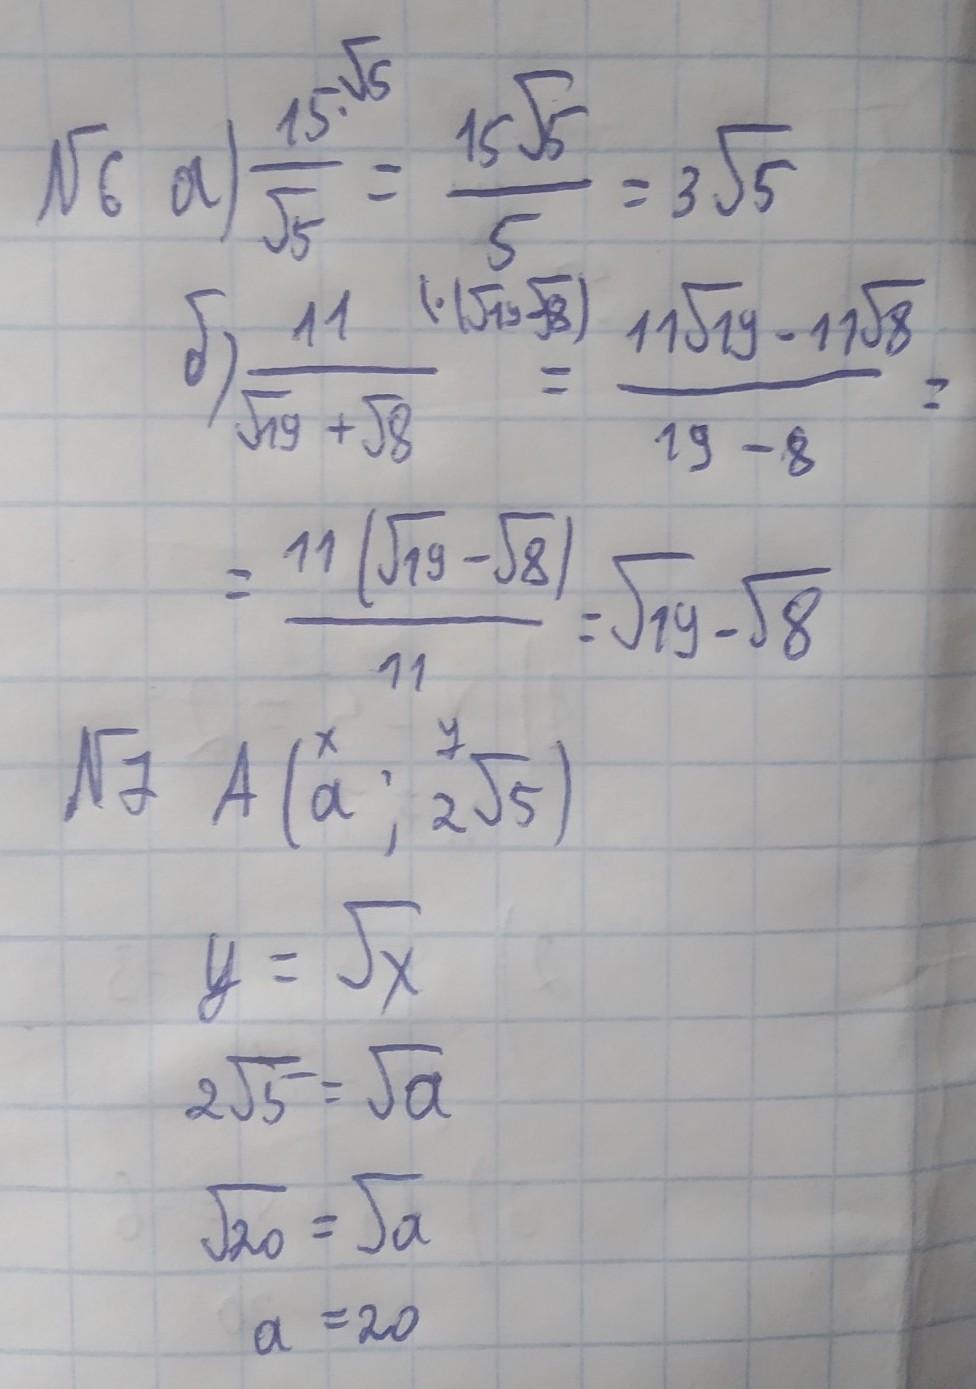 №6 а) 15·√5/√5 = 15√5/5 = 3√5
б) 11/(√19 + √8) (·(√19-√8) = (11√19 - 11√8)/(19 - 8) =
= 11(√19 - √8)/11 = √19 - √8
x y
№7 A(a; 2√5)
y = √x
2√5 = √a
√20 = √a
a = 20